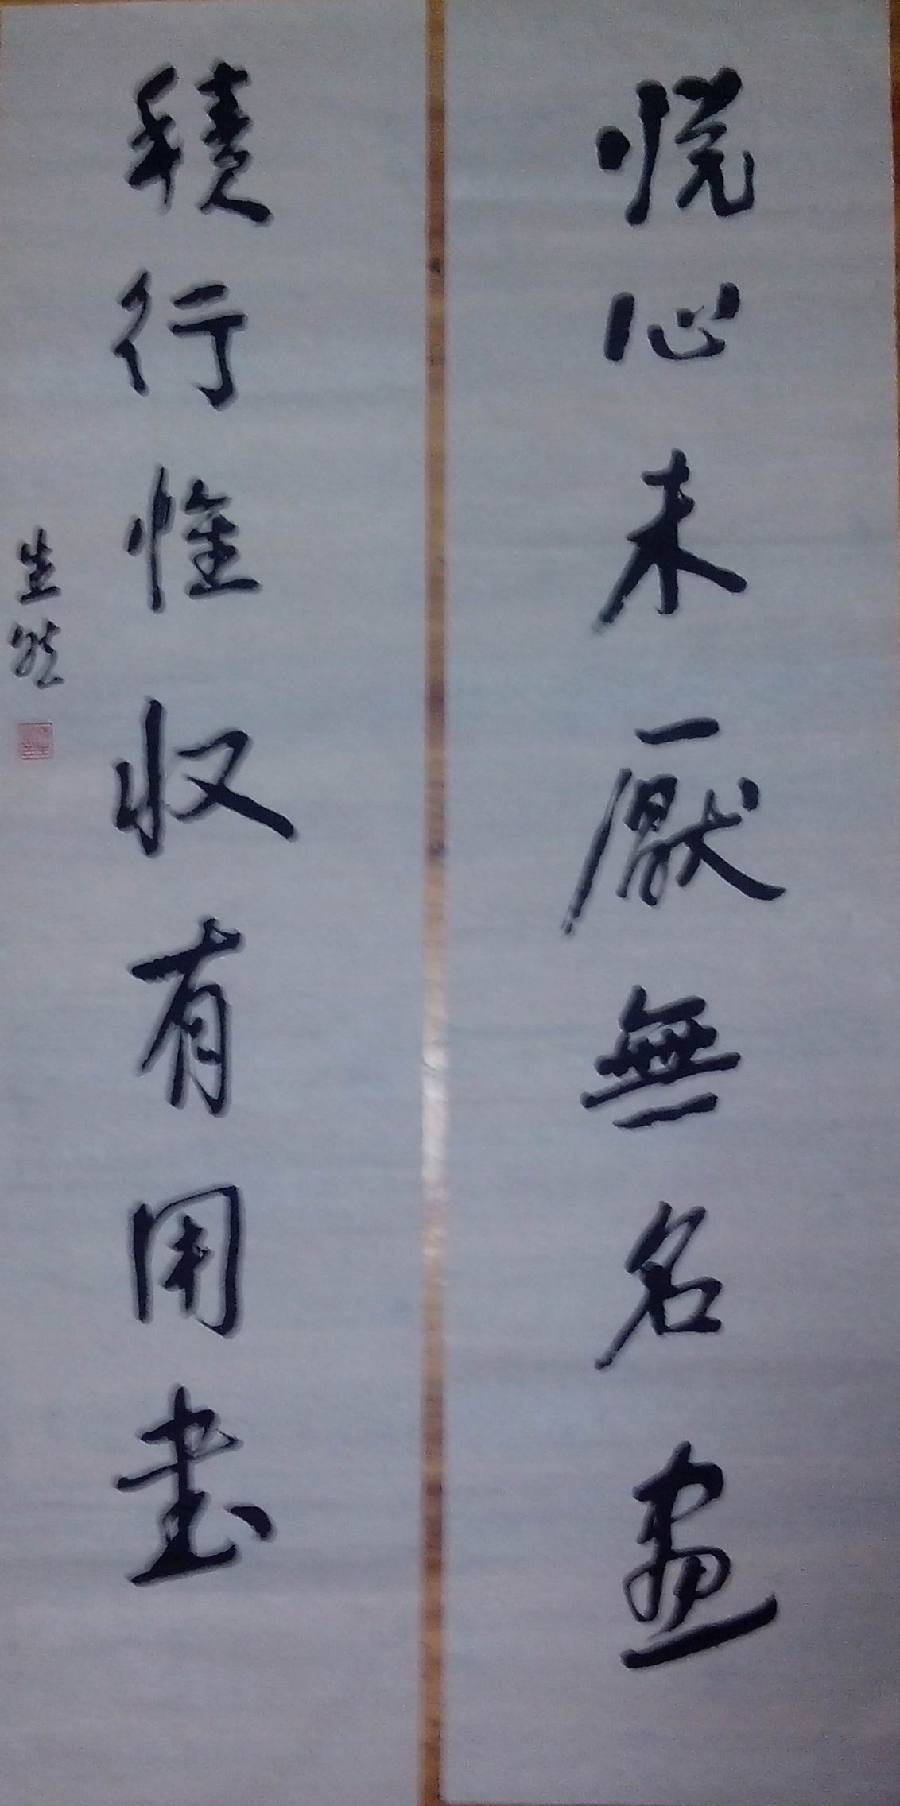 悦心未厭無名畫
積行惟收有用書
生然